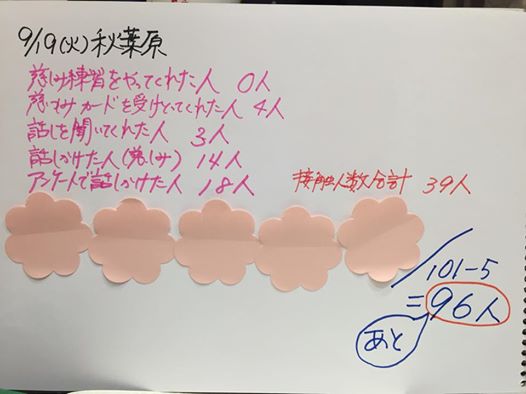 9/19(火)秋葉原
慈しみ練習をやってくれた人 0人
慈しみカードを受けとってくれた人 4人
話しを聞いてくれた人 3人
話しかけた人(慈しみ) 14人
アンケートで話しかけた人 18人
接触人数合計 39人
101-5
=96人
あと